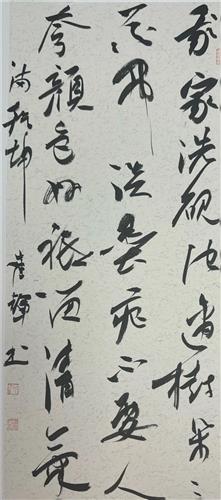 我家洗砚池边樹朵々
花开淡墨痕不要人
夸颜色好祇留清氣
满乾坤 輝书